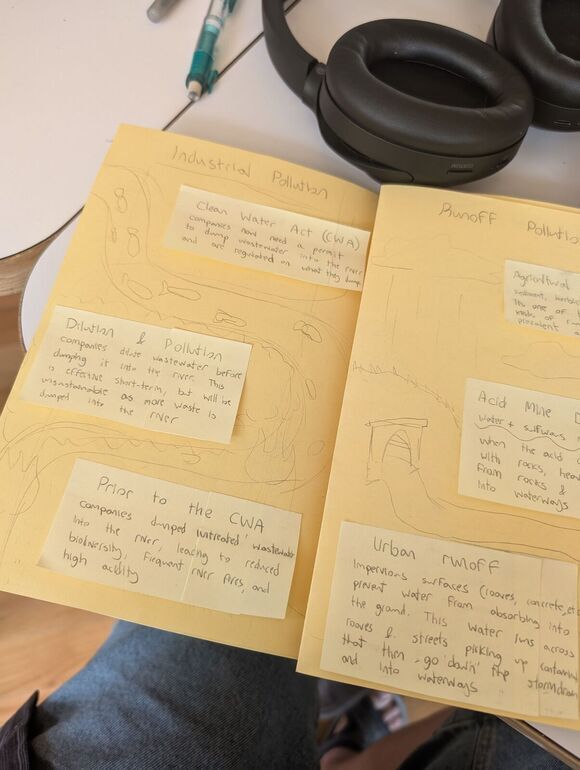 Industrial Pollution
Clean Water Act (CWA)
companies now need a permit
to dump wastewater into the river
and are regulated on what they dump
Dilution & Pollution
companies dilute wastewater before
dumping it into the river. This
is effective short-term, but will be
unsustainable as more waste is
dumped into the river
Prior to the CWA
companies dumped untreated wastewater
into the river, leading to reduced
biodiversity, frequent river fires, and
high acidity
Runoff Pollution
Agricultural
sediment,
Its one of
Acid Mine
water +
when the acid
with rocks, heav
from rocks &
into waterways
Urban runoff
Impervious surfaces (rooves, concrete, etc
prevent water from absorbing into
the ground. This water runs across
rooves & streets picking up contamin
that then go down the stormdrain
and into waterways